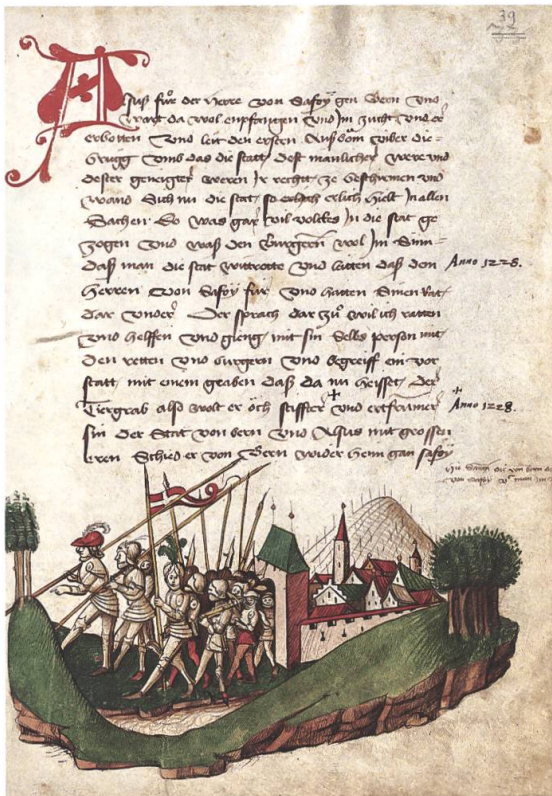 39
Alsuß für der Herre von Safoÿ gen Bern und
ward da wol enpfangen und Im zucht und er
erbotten und leit den ersten Außböm über die
Brugg umb das die statt dest manlicher were und
dester geneigter weren Ir rechtt ze beschirmen und
wand Sich nu die stat so erlich hielt In allen
Sachen So was gar vil volckes In die stat ge
zogen und waß den Burgern wol Im Sinn
daß man die stat wittrotte und leitten daß dem
Anno 1228.
Herren von Safoÿ für und hatten Sinen Rat
dar under Der sprach dar zü wil ich ratten
und helffen und gieng mit sin Selbs person mit
den retten und burgern und begreiff ein vor
statt mit einem graben daß da nu heisset Der
Tiergrab also wolt er öch stiffter und
Anno 1228.
sin der Stat von bern und Alsus mit grossen
eren Schied er von Bern wider heim gan safoÿ
von bern
von